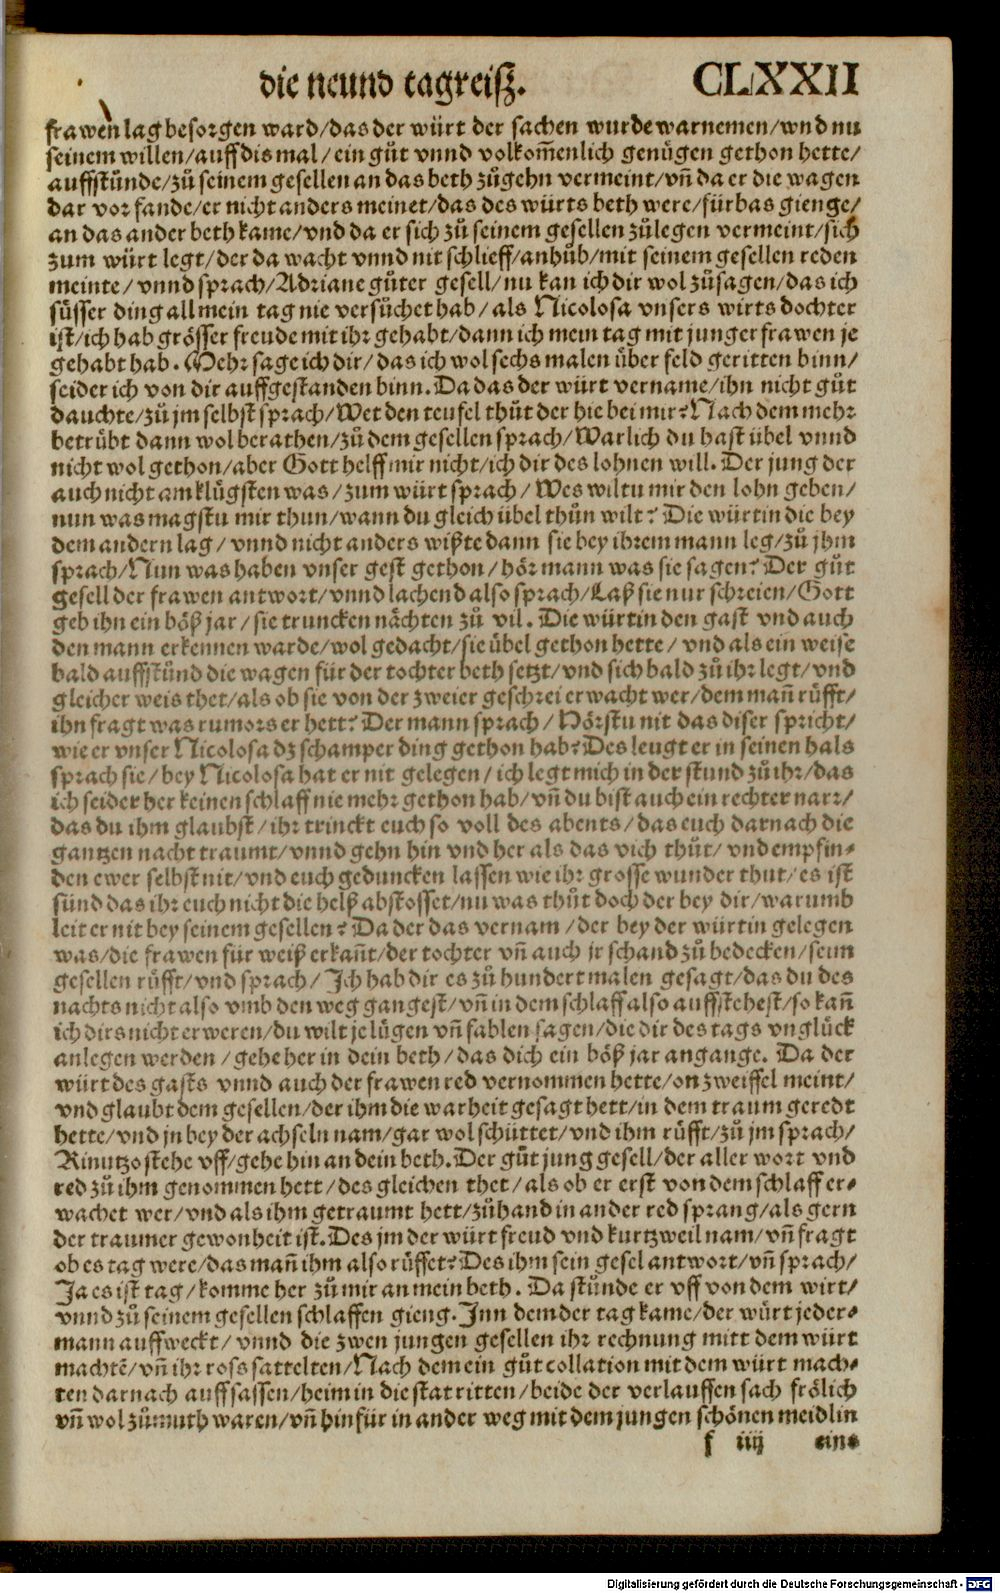 die neund tagreisz. CLXXII
frawen lag besorgen ward/das der würt der sachen wurde warnemen/vnd nu
seinem willen/auff dis mal/ein gůt vnnd volkom̃enlich genügen gethon hette/
auffstůnde/zů seinem gesellen an das beth zůgehn vermeint/vñ da er die wagen
dar vor fande/er nicht anders meinet/das des würts beth were/fürbas gienge/
an das ander beth kame/vnd da er sich zů seinem gesellen zůlegen vermeint/sich
zum würt legt/der da wacht vnnd nit schlieff/anhůb/mit seinem gesellen reden
meinte/vnnd sprach/Adriane gůter gesell/nu kan ich dir wol zůsagen/das ich
süsser ding all mein tag nie versůchet hab/als Nicolosa vnsers wirts dochter
ist/ich hab grösser freude mit ihr gehabt/dann ich mein tag mit junger frawen je
gehabt hab. Mehr sage ich dir/das ich wol sechs malen über feld geritten binn/
seider ich von dir auffgestanden binn. Da das der würt vername/ihn nicht gůt
dauchte/zů jm selbst sprach/Wet den teufel thůt der hie bei mir? Nach dem mehr
betrübt dann wol berathen/zů dem gesellen sprach/Warlich du hast übel vnnd
nicht wol gethon/aber Gott helff mir nicht/ich dir des lohnen will. Der jung der
auch nicht am klügsten was/zum würt sprach/Wes wiltu mir den lohn geben/
nun was magstu mir thun/wann du gleich übel thůn wilt? Die würtin die bey
dem andern lag/vnnd nicht anders wißte dann sie bey ihrem mann leg/zů jhm
sprach/Nun was haben vnser gest gethon/hör mann was sie sagen? Der gůt
gesell der frawen antwort/vnnd lachend also sprach/Laß sie nur schreien/Gott
geb ihn ein böß jar/sie truncken nächten zů vil. Die würtin den gast vnd auch
den mann erkennen warde/wol gedacht/sie übel gethon hette/vnd als ein weise
bald auffstůnd die wagen für der tochter beth setzt/vnd sich bald zů ihr legt/vnd
gleicher weis thet/als ob sie von der zweier geschrei erwacht wer/dem mañ růfft/
ihn fragt was rumors er hett? Der mann sprach/Hörstu nit das diser spricht/
wie er vnser Nicolosa dz schamper ding gethon hab? Des leugt er in seinen hals
sprach sie/bey Nicolosa hat er nit gelegen/ich legt mich in der stund zů ihr/das
ich seider her keinen schlaff nie mehr gethon hab/vñ du bist auch ein rechter narr/
das du ihm glaubst/ihr trinckt euch so voll des abents/das euch darnach die
gantzen nacht traumt/vnnd gehn hin vnd her als das vich thůt/vnd empfin-
den ewer selbst nit/vnd euch geduncken lassen wie ihr grosse wunder thut/es ist
sünd das ihr euch nicht die helß abstosset/nu was thůt doch der bey dir/warumb
leit er nit bey seinem gesellen? Da der das vernam/der bey der würtin gelegen
was/die frawen für weiß erkañt/der tochter vñ auch jr schand zů bedecken/seim
gesellen růfft/vnd sprach/Ich hab dir es zů hundert malen gesagt/das du des
nachts nicht also vmb den weg gangest/vñ in dem schlaff also auffstehest/so kañ
ich dirs nicht erweren/du wilt je lügen vñ fablen sagen/die dir des tags vnglück
anlegen werden/gehe her in dein beth/das dich ein böß jar angange. Da der
würt des gasts vnnd auch der frawen red vernommen hette/on zweiffel meint/
vnd glaubt dem gesellen/der ihm die warheit gesagt hett/in dem traum geredt
hette/vnd jn bey der achseln nam/gar wol schüttet/vnd ihm růfft/zů jm sprach/
Rinutzo stehe vff/gehe hin an dein beth. Der gůt jung gesell/der aller wort vnd
red zů ihm genommen hett/des gleichen thet/als ob er erst von dem schlaff er-
wachet wer/vnd als ihm getraumt hett/zůhand in ander red sprang/als gern
der traumer gewonheit ist. Des jm der würt freud vnd kurtzweil nam/vñ fragt
ob es tag were/das mañ ihm also růffet? Des ihm sein gesel antwort/vñ sprach/
Ja es ist tag/komme her zů mir an mein beth. Da stůnde er vff von dem wirt/
vnnd zů seinem gesellen schlaffen gieng. Inn dem der tag kame/der würt jeder-
mann auffweckt/vnnd die zwen jungen gesellen ihr rechnung mitt dem würt
machtē/vñ ihr ross sattelten/Nach dem ein gůt collation mit dem würt mach-
ten darnach auffsassen/heim in die stat ritten/beide der verlauffen sach frölich
vñ wol zůmuth waren/vñ hinfür in ander weg mit dem jungen schönen meidlin
f iiij eine
Digitalisierung gefördert durch die Deutsche Forschungsgemeinschaft - DFG